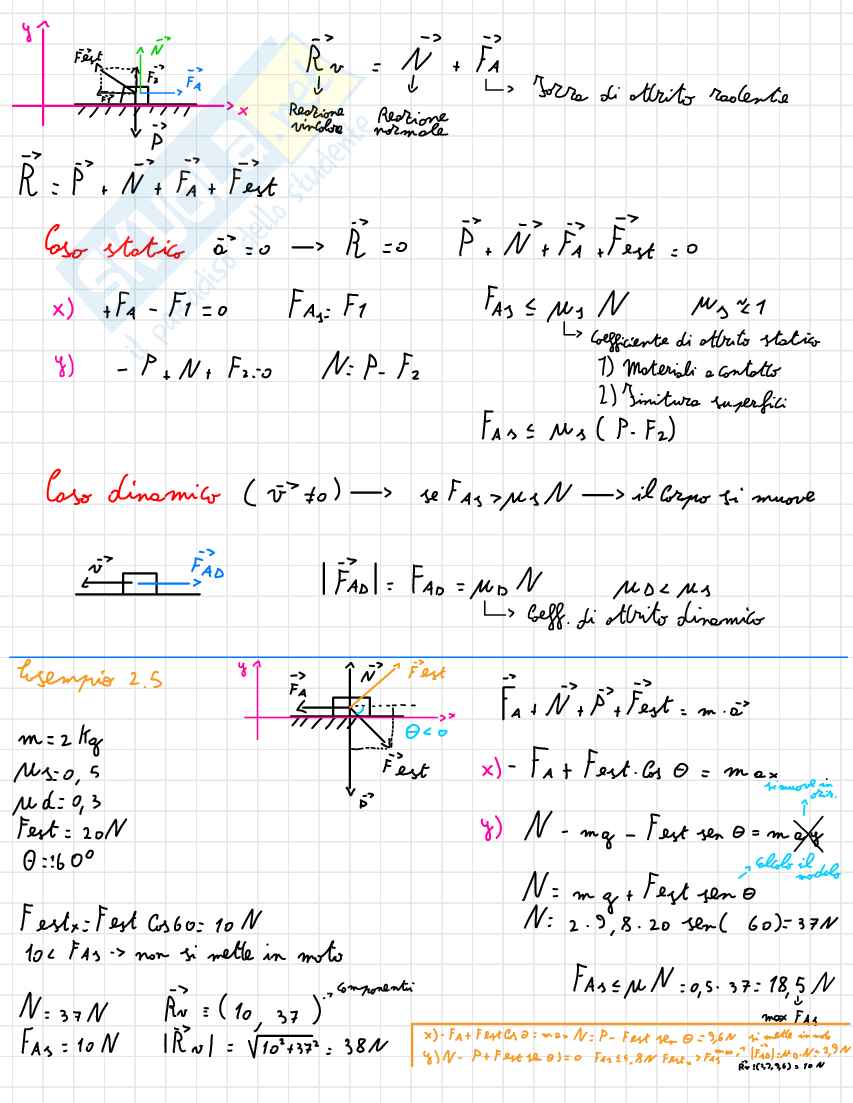 y
F⃗est
N⃗
F₂
F⃗A
F1
x
P⃗
R⃗v = N⃗ + F⃗A
Reazione vincolare
Reazione normale
Forza di attrito radente
R⃗ = P⃗ + N⃗ + F⃗A + F⃗est
Caso statico a⃗ = 0 → R⃗ = 0 P⃗ + N⃗ + F⃗A + F⃗est = 0
x) +FA - F1 = 0 FAs = F1 FAs ≤ μs N μs ~< 1
Coefficiente di attrito statico
1) Materiali a contatto
2) Finitura superfici
y) - P + N + F2 = 0 N = P - F2
FAs ≤ μs (P - F2)
Caso dinamico (v⃗ ≠ 0) → se FAs > μs N → il corpo si muove
v⃗
F⃗AD
|F⃗AD| = FAD = μD N μD < μs
Coeff. di attrito dinamico
Esempio 2.5
y
F⃗A
N⃗
F⃗est
x
θ < 0
F⃗est
P⃗
F⃗A + N⃗ + P⃗ + F⃗est = m · a⃗
m = 2 Kg
μs = 0,5
μd = 0,3
Fest = 20 N
θ = 60°
x) - FA + Fest · Cos θ = m ax
si muove in oriz.
y) N - mg - Fest sen θ = m ay
calcolo il modulo
N = mg + Fest sen θ
N = 2 · 9,8 · 20 sen( 60) = 37 N
Festx = Fest Cos 60 = 10 N
10 < FAs → non si mette in moto
FAs ≤ μ N = 0,5 · 37 = 18,5 N
max FAs
N = 37 N R⃗v = (10, 37)
componenti
FAs = 10 N |R⃗v| = √10² + 37² = 38 N
x) - FA + Fest Cos θ = max N = P - Fest sen θ = 3,6 N si mette in moto
y) N - P + Fest sen θ = 0 FAs ≤ 1,8 N Festx > FAs max |F⃗AD| = μD · N = 2,9 N